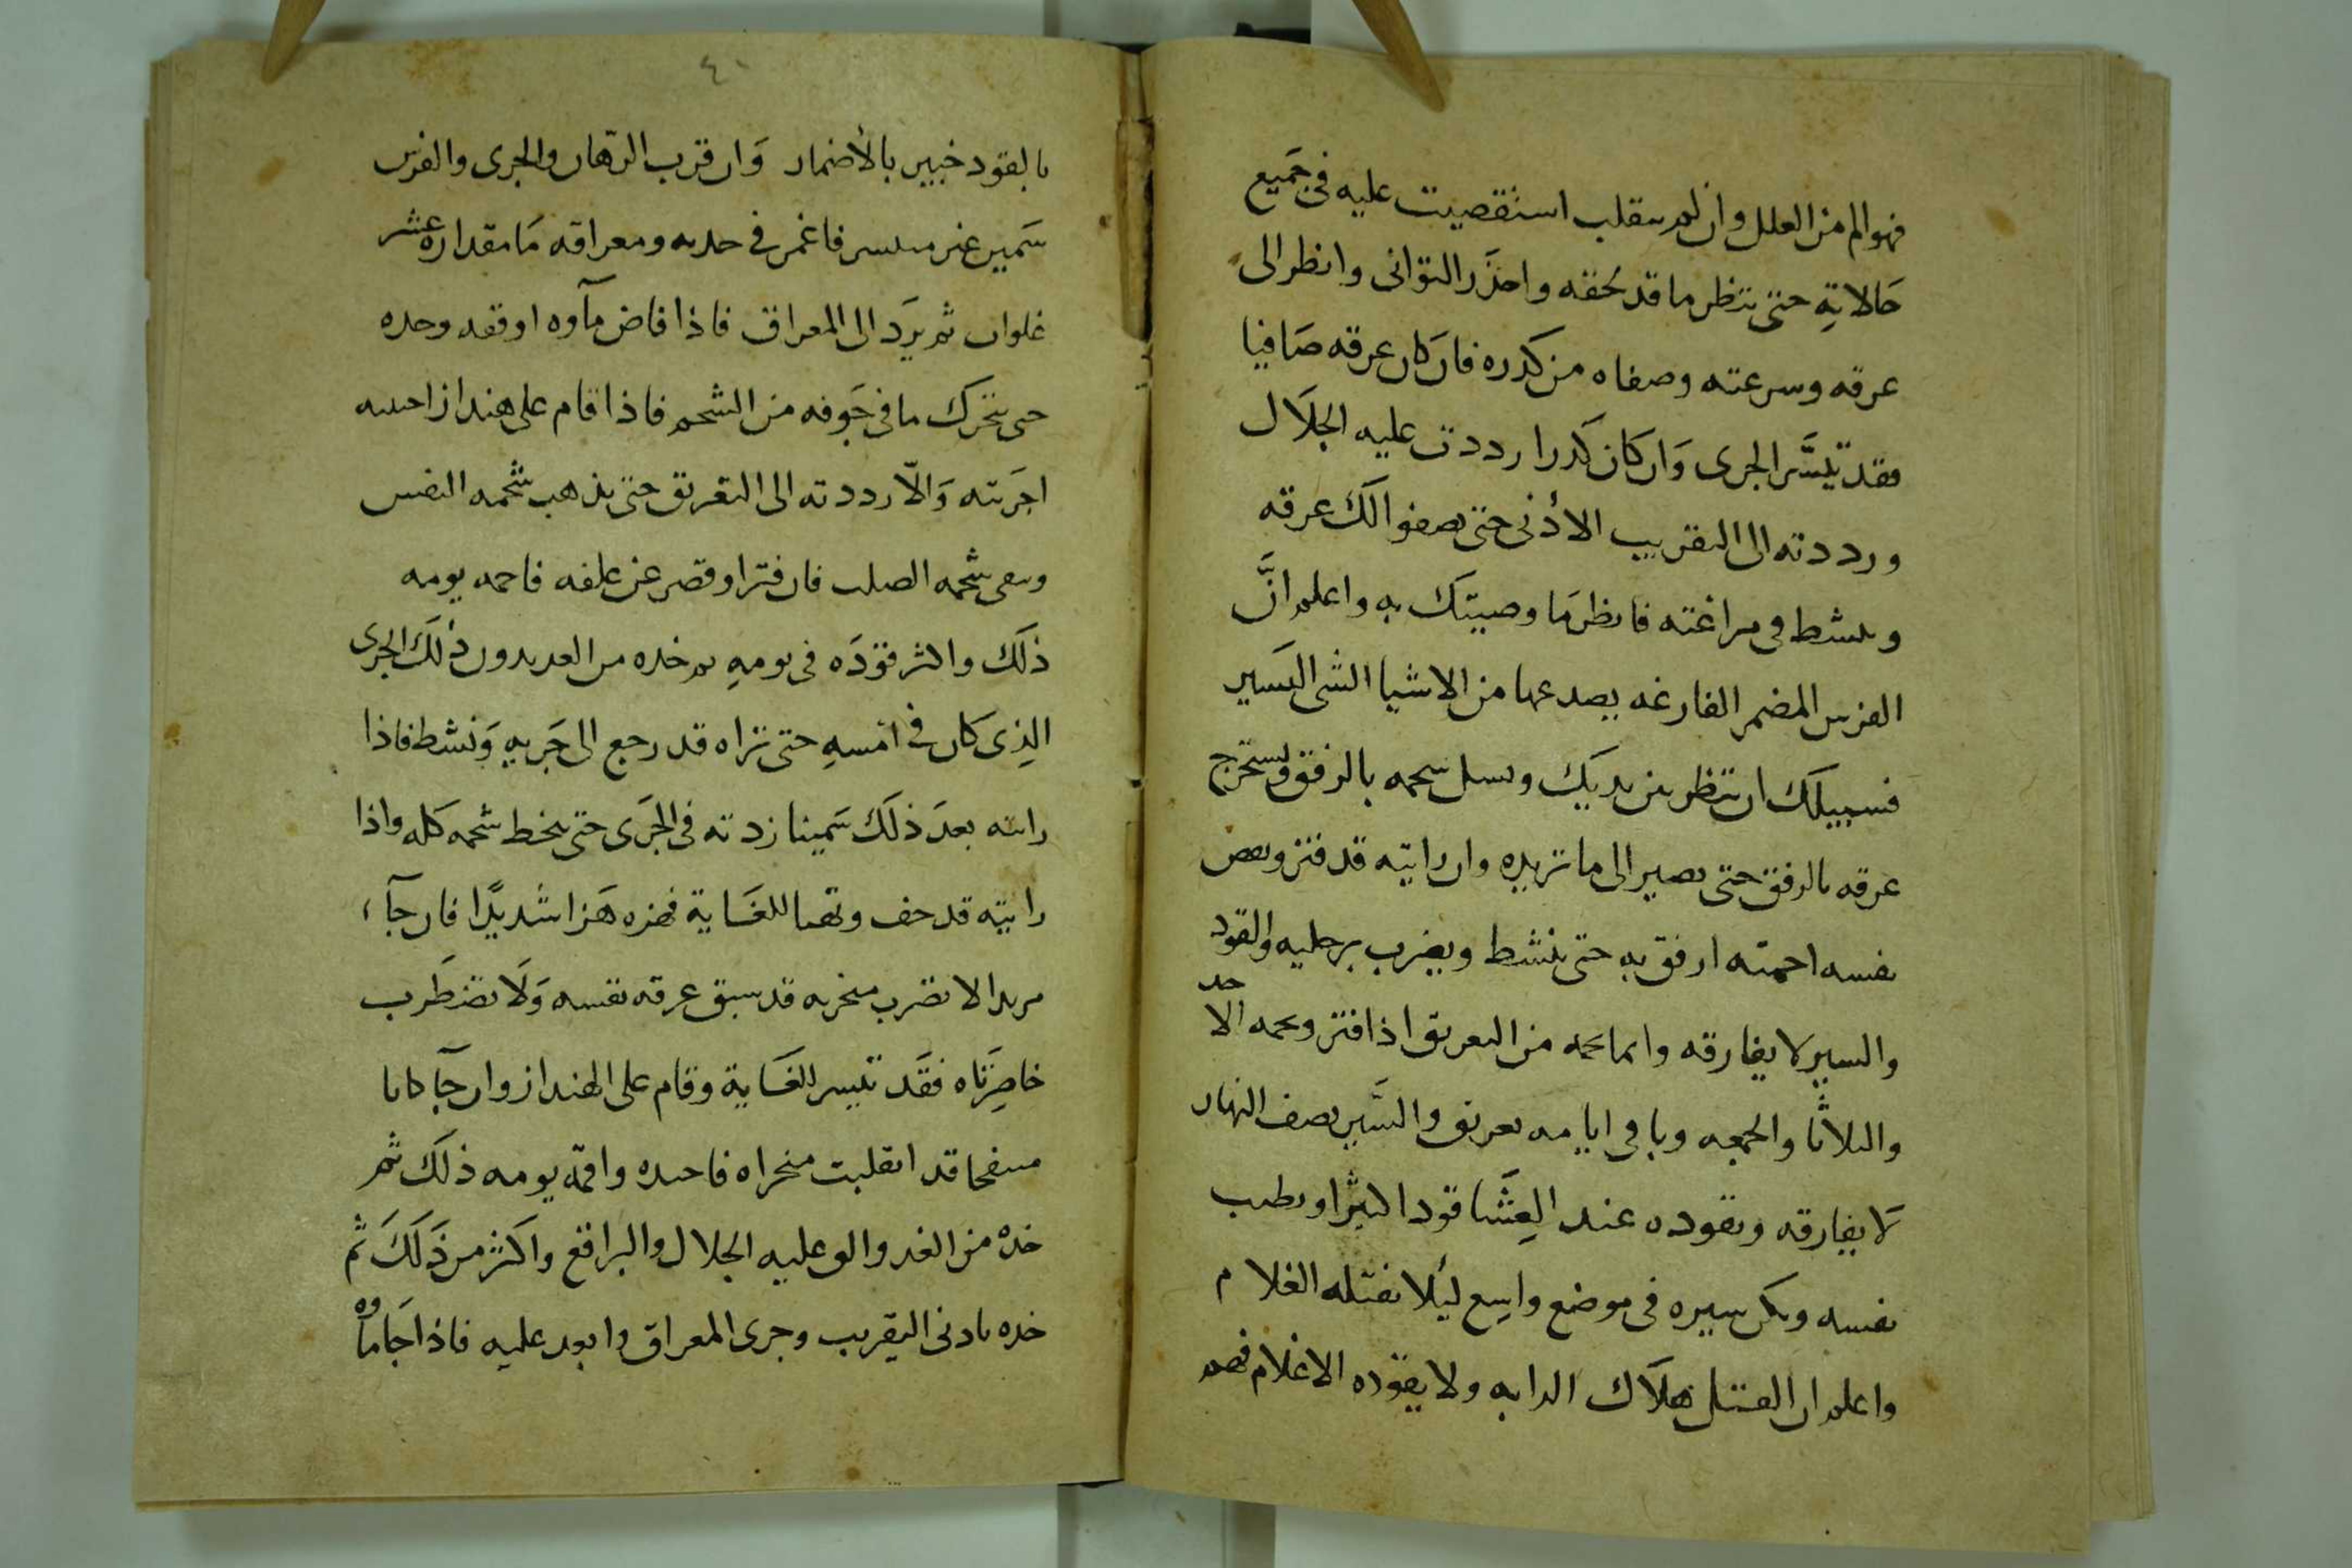 فهو الم من العلل وان لم ينقلب استقصيت عليه فى جميع
حالاته حتى تنظر ما قد لحقه واحذر التوانى وانظر الى
عرقه وسرعته وصفاه من كدره فان كان عرقه صافيا
فقد تيسَّر الجرى وَان كان كَدرا رددت عليه الجلَال
ورددته الى التقريب الأدنى حتى يصفوا لك عرقه
وينشط فى مراغته فانظر مَا وصيتك به واعلم انَّ
الفرس المضمر الفارغه يصدعها من الاشيا الشى اليسير
فسبيلك ان تنظر بين يديك وتسل شحمه بالرفق وتستخرج
عرقه بالرفق حتى يصير الى ما تريده وان رايته قد فتر ونقص
نفسه احمته ارفق به حتى ينشط ويضرب برجليه والقود
والسير لا يفارقه وانما تحمه من التعريق اذا فتر وتحمه الاحد
والثلاثا والجمعه وباقى ايامه تعريق والسَّير نصف النهار
لا يفارقه وتقوده عند العِشَا قودا كثيرا وتطيب
نفسه ويكن سيره فى موضع واسِع ليلا يفتله الغلام
واعلم ان الفتل هلاك الدابه ولا يقوده الا غلام فهم
٤١
بالقود خبير بالأضمار وَان قرب الرهان والجرى والفرس
سَمين غير متيسر فاغمز فى جريه ومعراقه مَا مقداره عشر
غلوات ثم يرَد الى المعراق فاذا فاض مآوه اوقفه وحده
حتى يتحرك ما فى جَوفه من الشحم فاذا قام على هنداز
اجرَيته وَالّا رددته الى التعريق حتى يذهب شحمه النفس
ويبقى شحمه الصلب فان فترا وقصر عن علفه فاحمه يومه
ذلَك واكثر قوَدَه فى يومهِ ثم خده من الغد بدون ذلَك الجرى
الذِى كان فى امَسهِ حتى تراه قد رجع الى جَريهِ وَنشط فاذا
رايته بعدَ ذلَك سَمينا زدته فى الجرَى حتى ينحط شحمه كله واذا
رايته قد خف وتهيا للغَاية فهزه هَزا شديدًا فان جآء
مربدا لا تضرب منخريه قد سبق عرقه نفسه وَلَا تضطَرب
خاصِرَتاه فقَد تيسر للغَاية وقام على الهنداز وان جآ كابا
منتفخا قد انقلبت منخراه يومه ذلَك ثم
خدهْ من الغد والق عليه الجلال والبراقع واكثر من ذَلَكَ ثم
خده بادنى التقريب وجرى المعراق وابعد عليه فاذا جَا ماوه